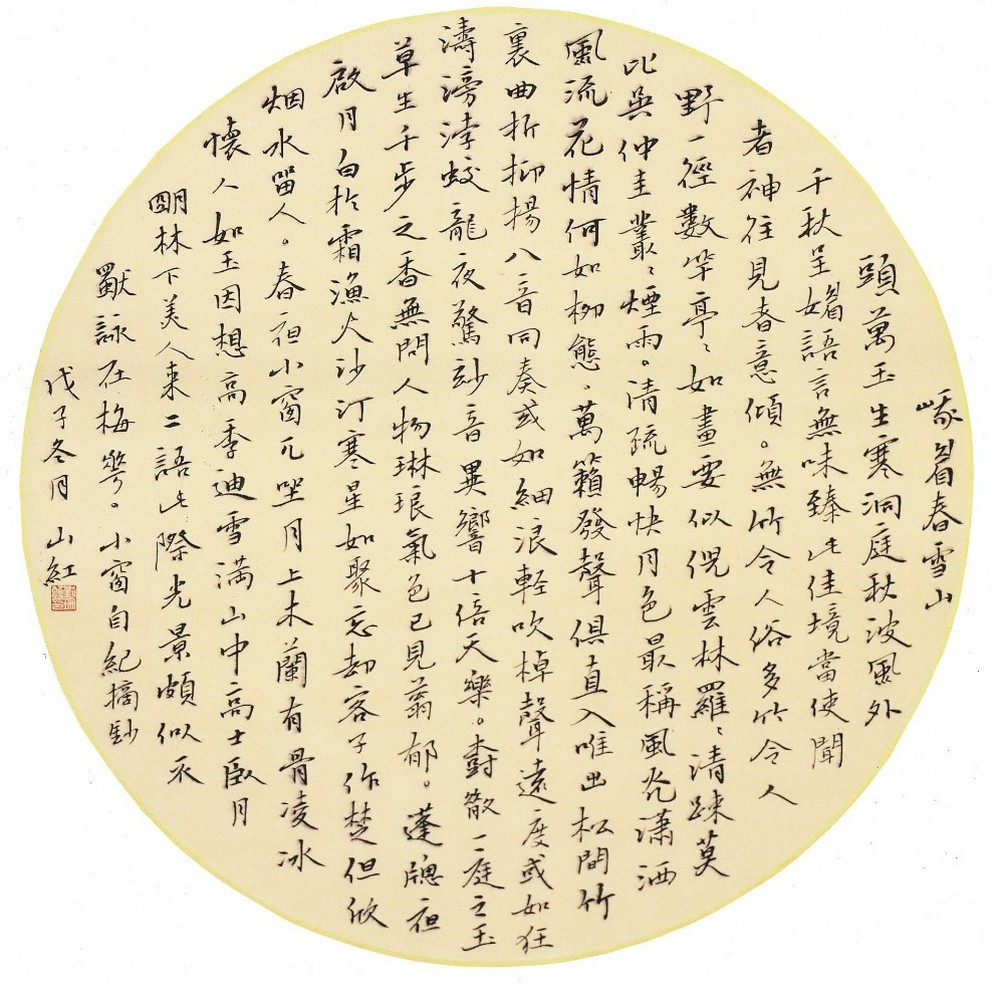 峨眉春雪山
頭萬玉生寒洞庭秋波風外
千秋呈媚語言無味臻此佳境當使聞
者神往見春意傾。無竹令人俗多竹令人
野一徑數竿亭〻如畫要似倪雲林羅〻清疎莫
比吳仲圭叢〻煙雨。清疏暢快月色最稱風光瀟洒
風流花情何如柳態。萬籟發聲俱直入唯出松間竹
裏曲折抑揚八音同奏或如細浪輕吹棹聲遠度或如狂
濤滂渟蛟龍夜驚玅音異響十倍天樂。樹散一庭之玉
草生千步之香無問人物琳琅氣色已見蓊郁。蓬牕夜
啟月白於霜漁火沙汀寒星如聚忘却客子作楚但欣
烟水留人。春夜小窗兀坐月上木蘭有骨凌冰
懷人如玉因想高季迪雪滿山中高士臥月
明林下美人来二語此際光景頗似不
獸詠在梅花。小窗自紀摘鈔
戊子冬月 山紅